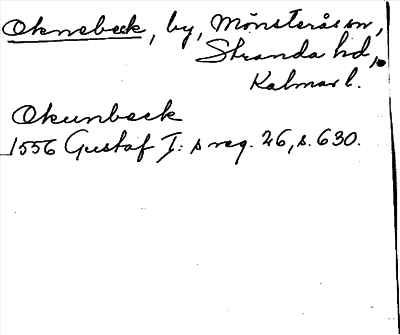 Oknebeck, by, Mönsterås sn,
Stranda hd,
Kalmar l.
Okunbeck
1556 Gustaf I:s reg. 26, s. 630.